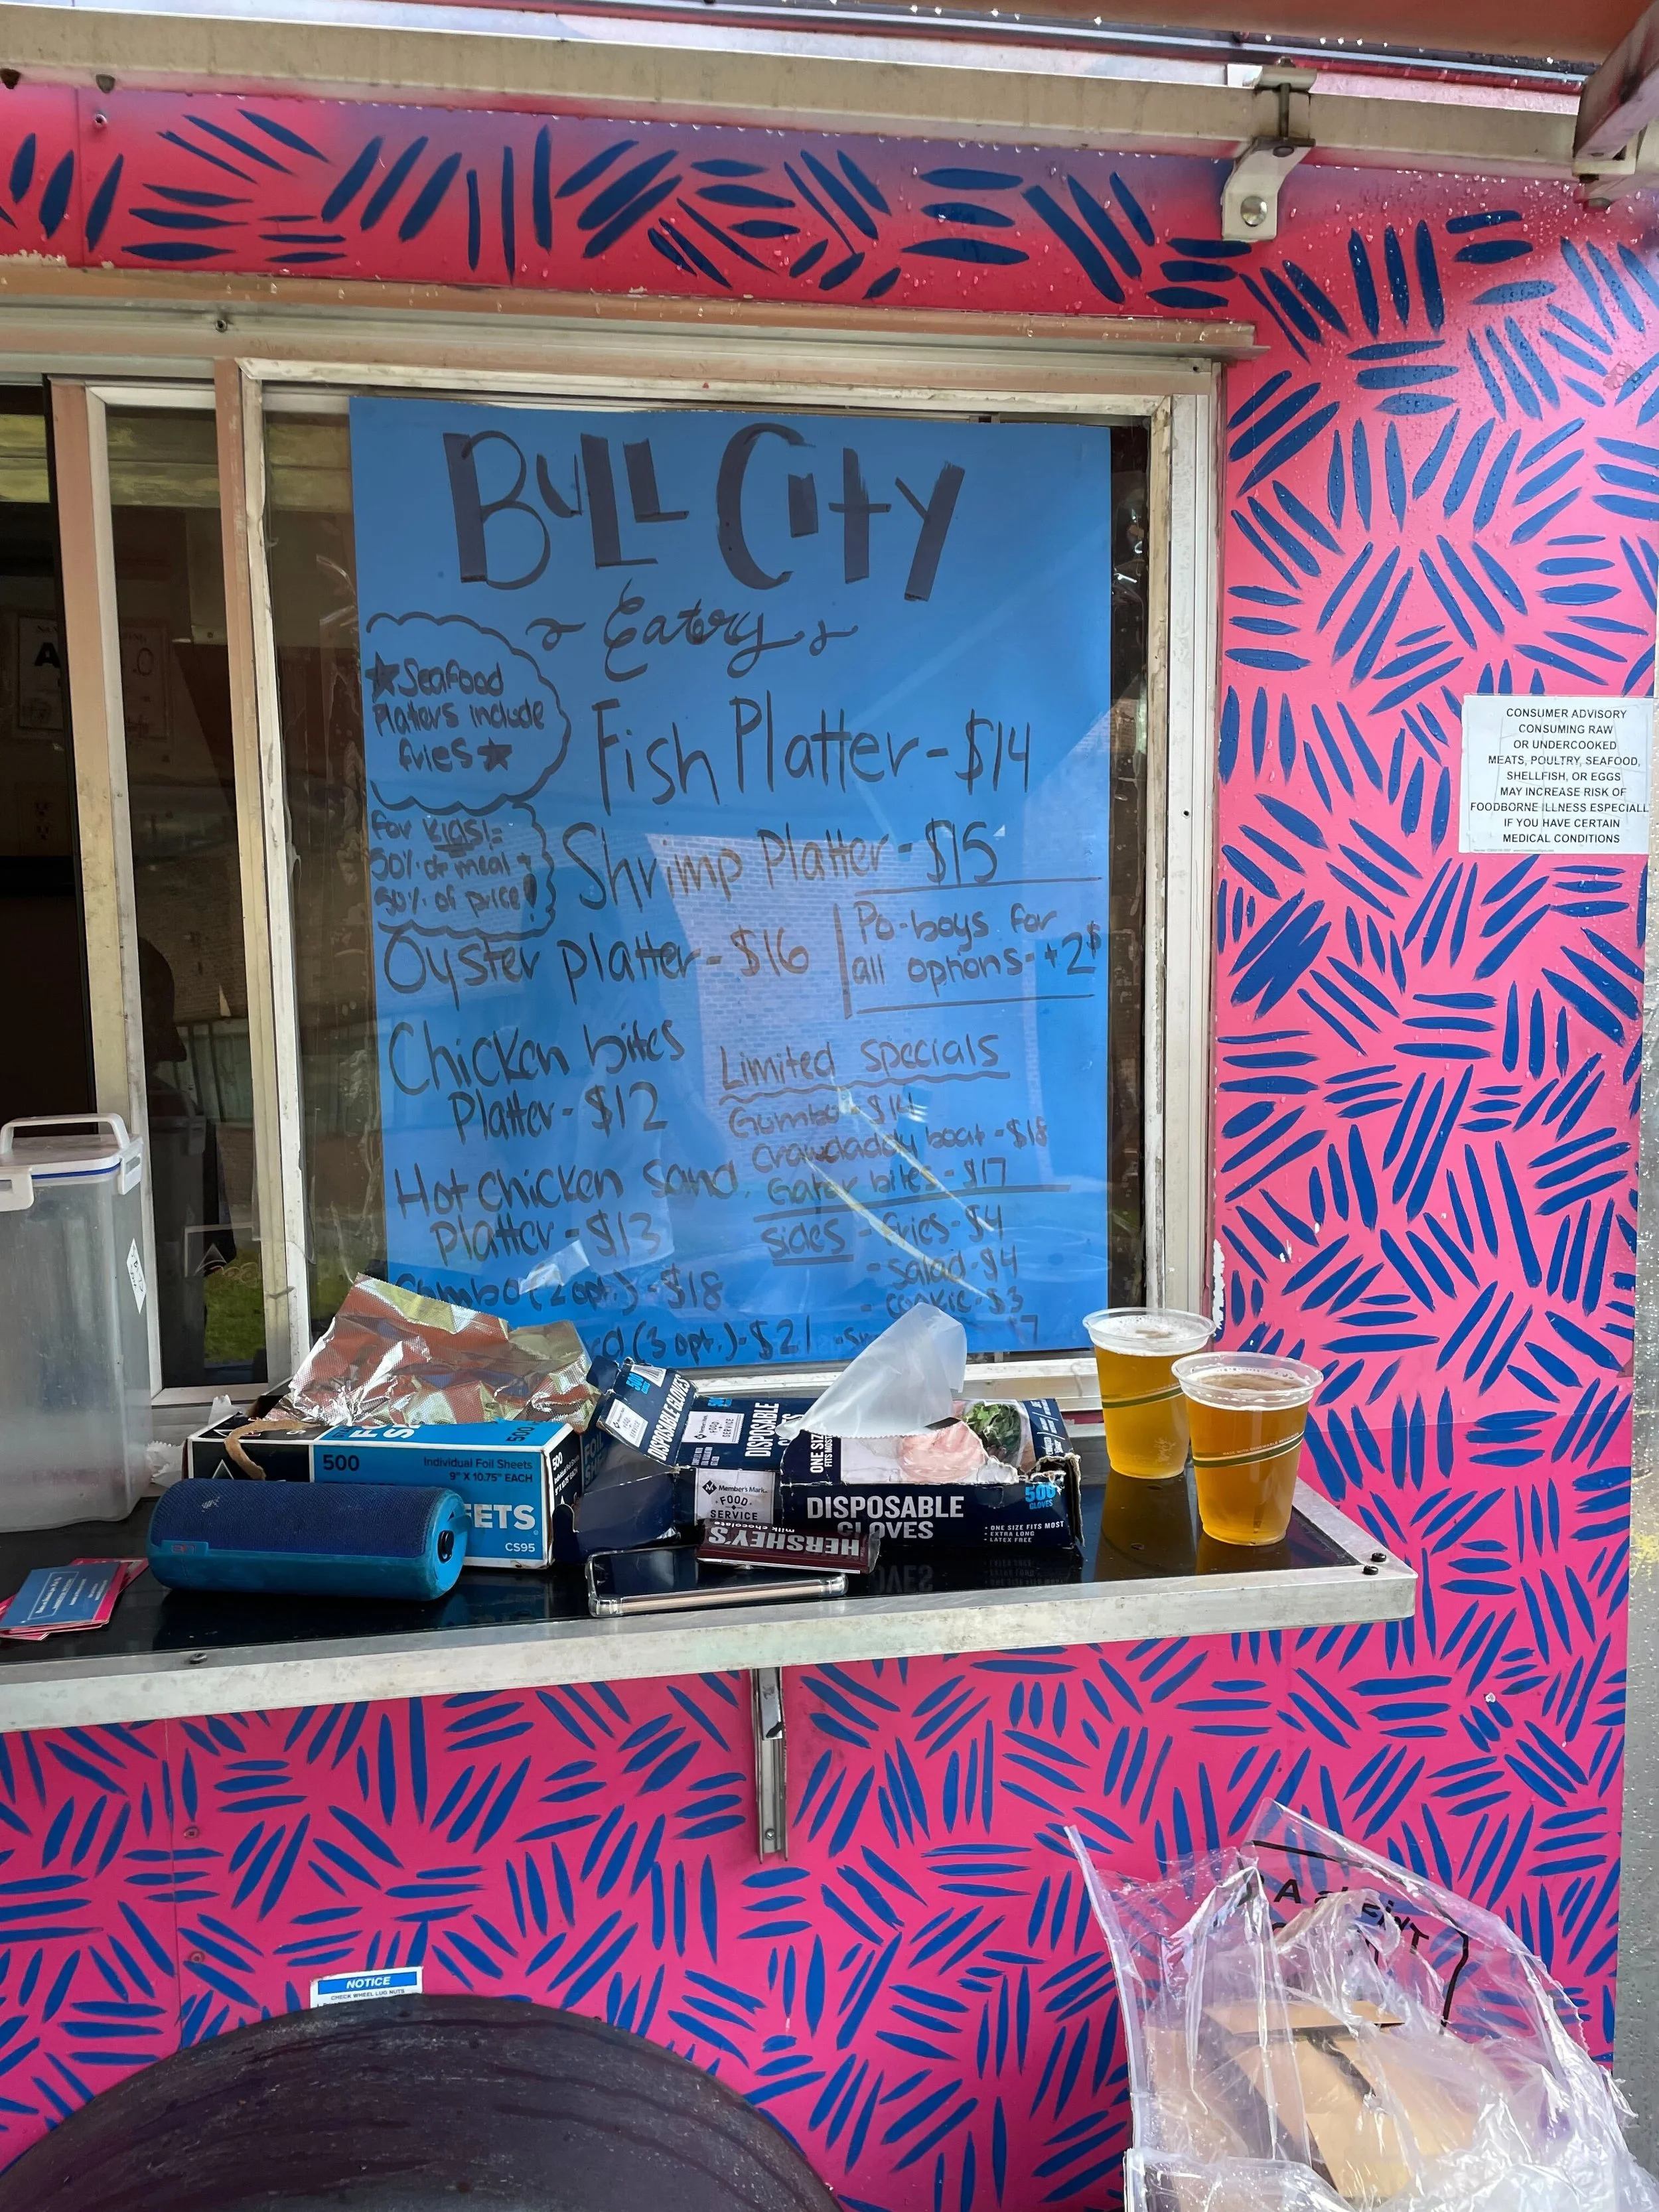 BULL CITY
Eatery
★ Seafood
Platters include
fries ★
for kids!=
50% of meal +
50% of price!
Fish Platter - $14
Shrimp Platter - $15
Oyster platter - $16
Po-boys for
all options - +2$
Chicken bites
Platter - $12
Hot chicken Sand.
Platter - $13
(2 opt.) - $18
(3 opt.) - $21
Limited specials
Gumbo - $14
Crawdaddy boat - $18
Gator bites - $17
sides - fries - $4
- salad - $4
- cookie - $3
CONSUMER ADVISORY
CONSUMING RAW
OR UNDERCOOKED
MEATS, POULTRY, SEAFOOD,
SHELLFISH, OR EGGS
MAY INCREASE RISK OF
FOODBORNE ILLNESS ESPECIALL
IF YOU HAVE CERTAIN
MEDICAL CONDITIONS
500
Individual Foil Sheets
9" X 10.75" EACH
EETS
CS95
500
DISPOSABLE GLOVES
DISPOSABLE
ONE SIZE
FITS MOST
Member's Mark
FOOD
SERVICE
DISPOSABLE
GLOVES
500
GLOVES
• ONE SIZE FITS MOST
• EXTRA LONG
• LATEX FREE
HERSHEY'S
milk chocolate
NOTICE
CHECK WHEEL LUG NUTS